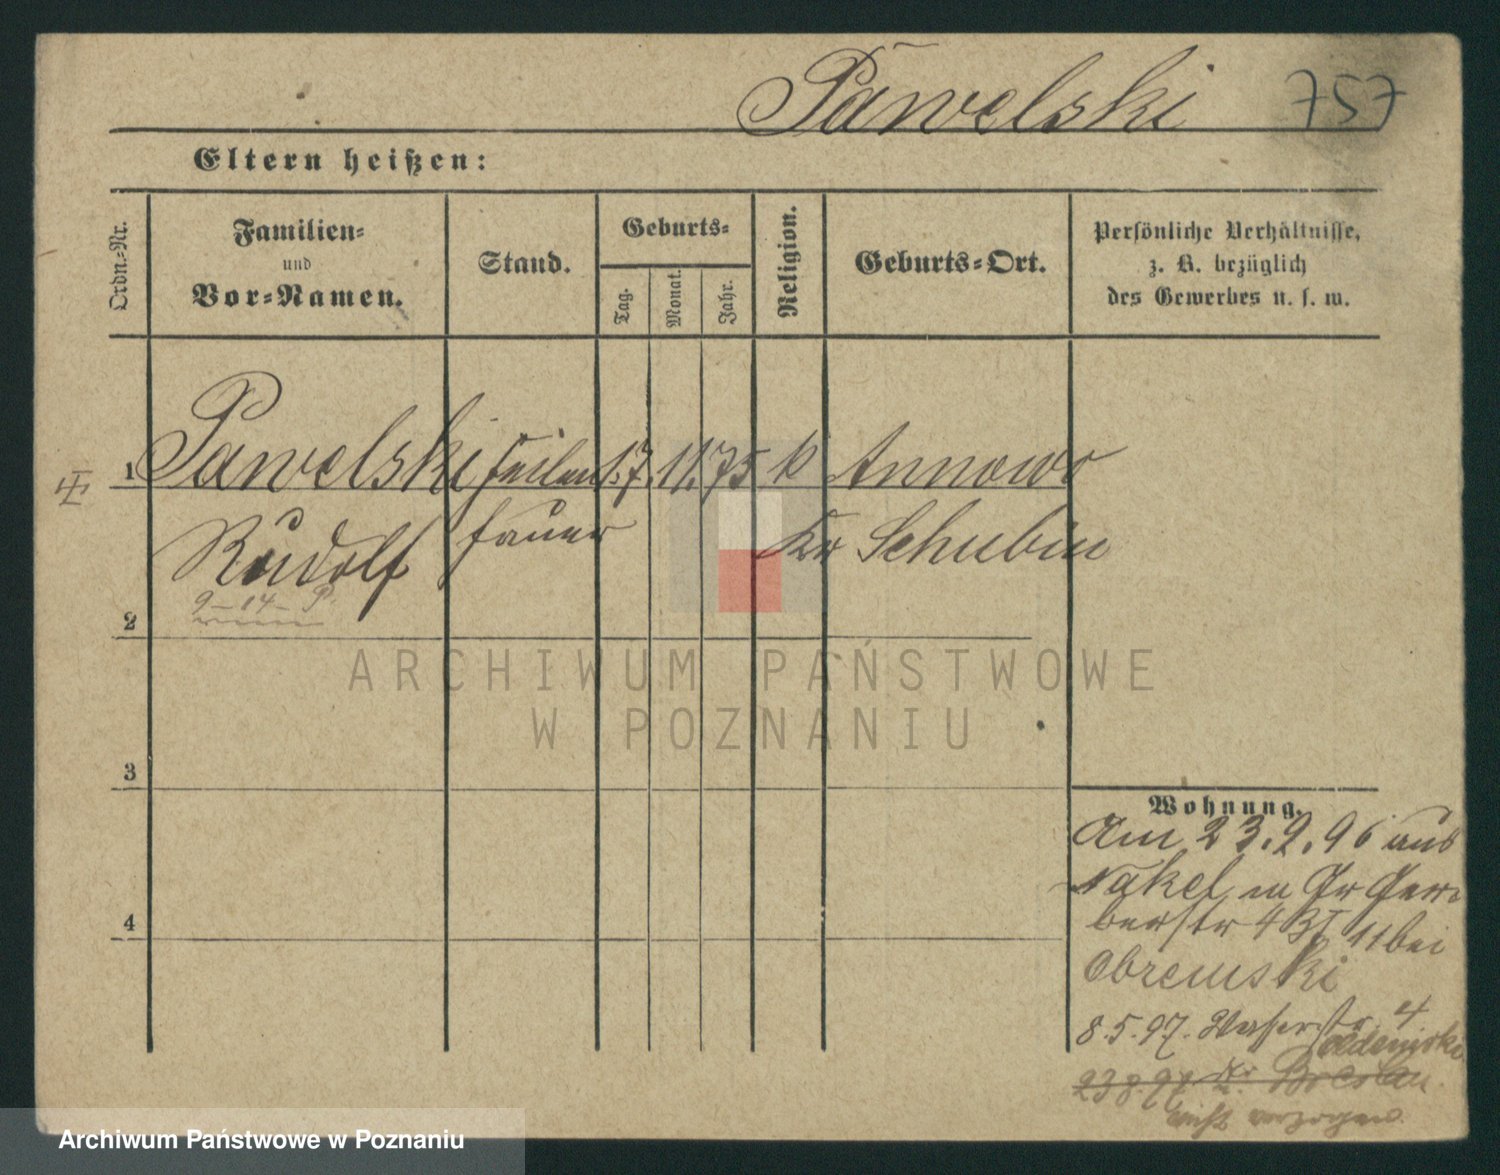 Pawelski 757
Eltern heißen:
Ordn.-Nr.
Familien- und Vor-Namen.
Stand.
Geburts-
Tag.
Monat.
Jahr.
Religion.
Geburts-Ort.
Persönliche Verhältnisse,
z. B. bezüglich
des Gewerbes u. s. w.
1 Pawelski Feilen 17. 11. 75 k Annowo
Rudolf hauer Kr Schubin
9-14- P.
2
3
4
ARCHIWUM PAŃSTWOWE
W POZNANIU
Wohnung.
Am 23.9.96 aus
Nakel n Gr Ger-
berstr 4 11 bei
8.5.97. Wasserstr 4
23 8.97 n. Breslau.
nicht verzogen.
Archiwum Państwowe w Poznaniu